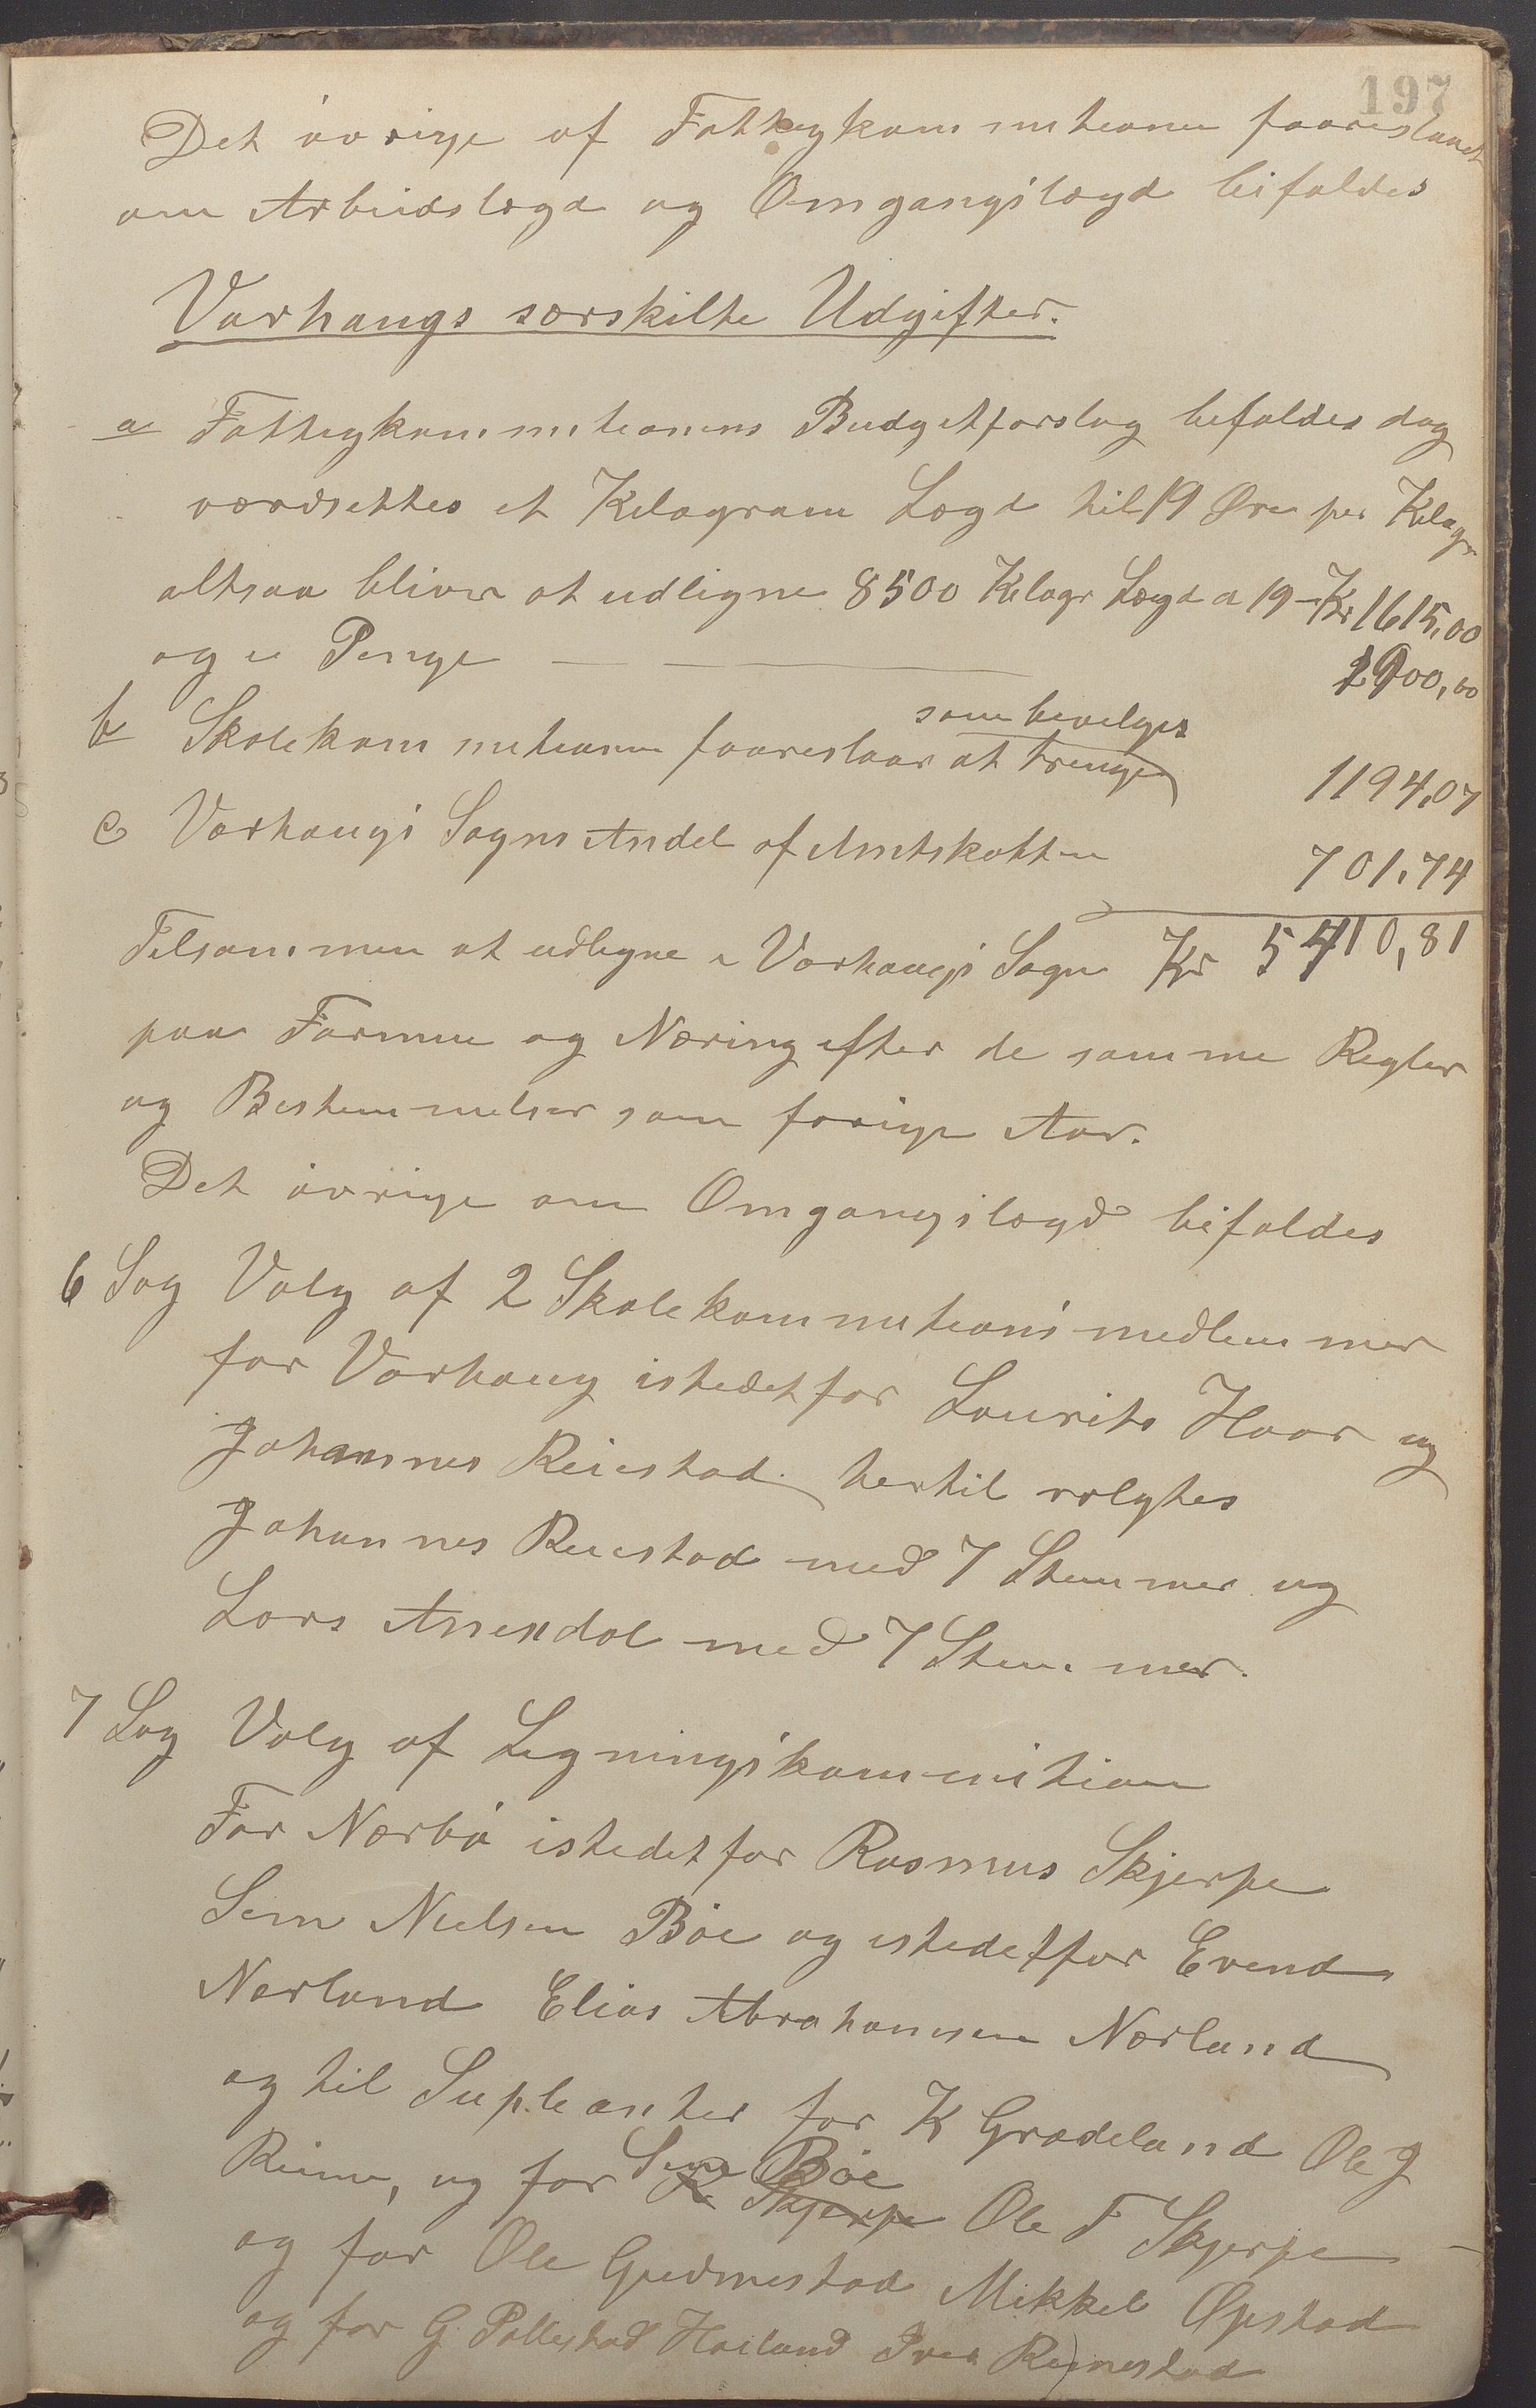 197
Det øvrige af Fattigkommitionen faareslaaet
om Arbeidslægd og Omgangslægd bifaldes
Varhaugs særskilte Udgifter.
a Fattigkommitionens Budgetforslag bifaldes dog
værdsættes et Kilogram Lægd til 19 Øre per Kilogr
altsaa bliver at udligne 8500 Kilogr Lægd a 19 - Kr 1615,00
og i Penge — — 1900,00
som bevilges
b Skolekommitionen faareslaar at trenge 1194,07
c Varhaugs Sogns Andel af Amtskatten 701,74
Tilsammen at udligne i Varhaugs Sogn Kr 5410,81
paa Formue og Næring efter de samme Regler
og Bestemmelser som forige Aar.
Det øvrige om Omgangslægd bifaldes
6 Sag Valg af 2 Skolekommitions medlemmer
for Varhaug istedetfor Laurits Haar og
Johannes Reiestad hertil valgtes
Johannes Reiestad med 7 Stemmer og
Lars Aniendal med 7 Stemmer.
7 Sag Valg af Ligningskommition
For Nærbø istedetfor Rasmus Skjerpe
Sem Nielsen Bøe og istedetfor Evend
Nærland Elias Abrahamsen Nærland
og til Supleanter for K Grødeland Ole J
Reime, og for Sem Bøe R Skjerpe Ole T Skjerpe
og for Ole Gudmestad Mikkel Opstad
og for G Pollestad Høiland Iver Reimestad